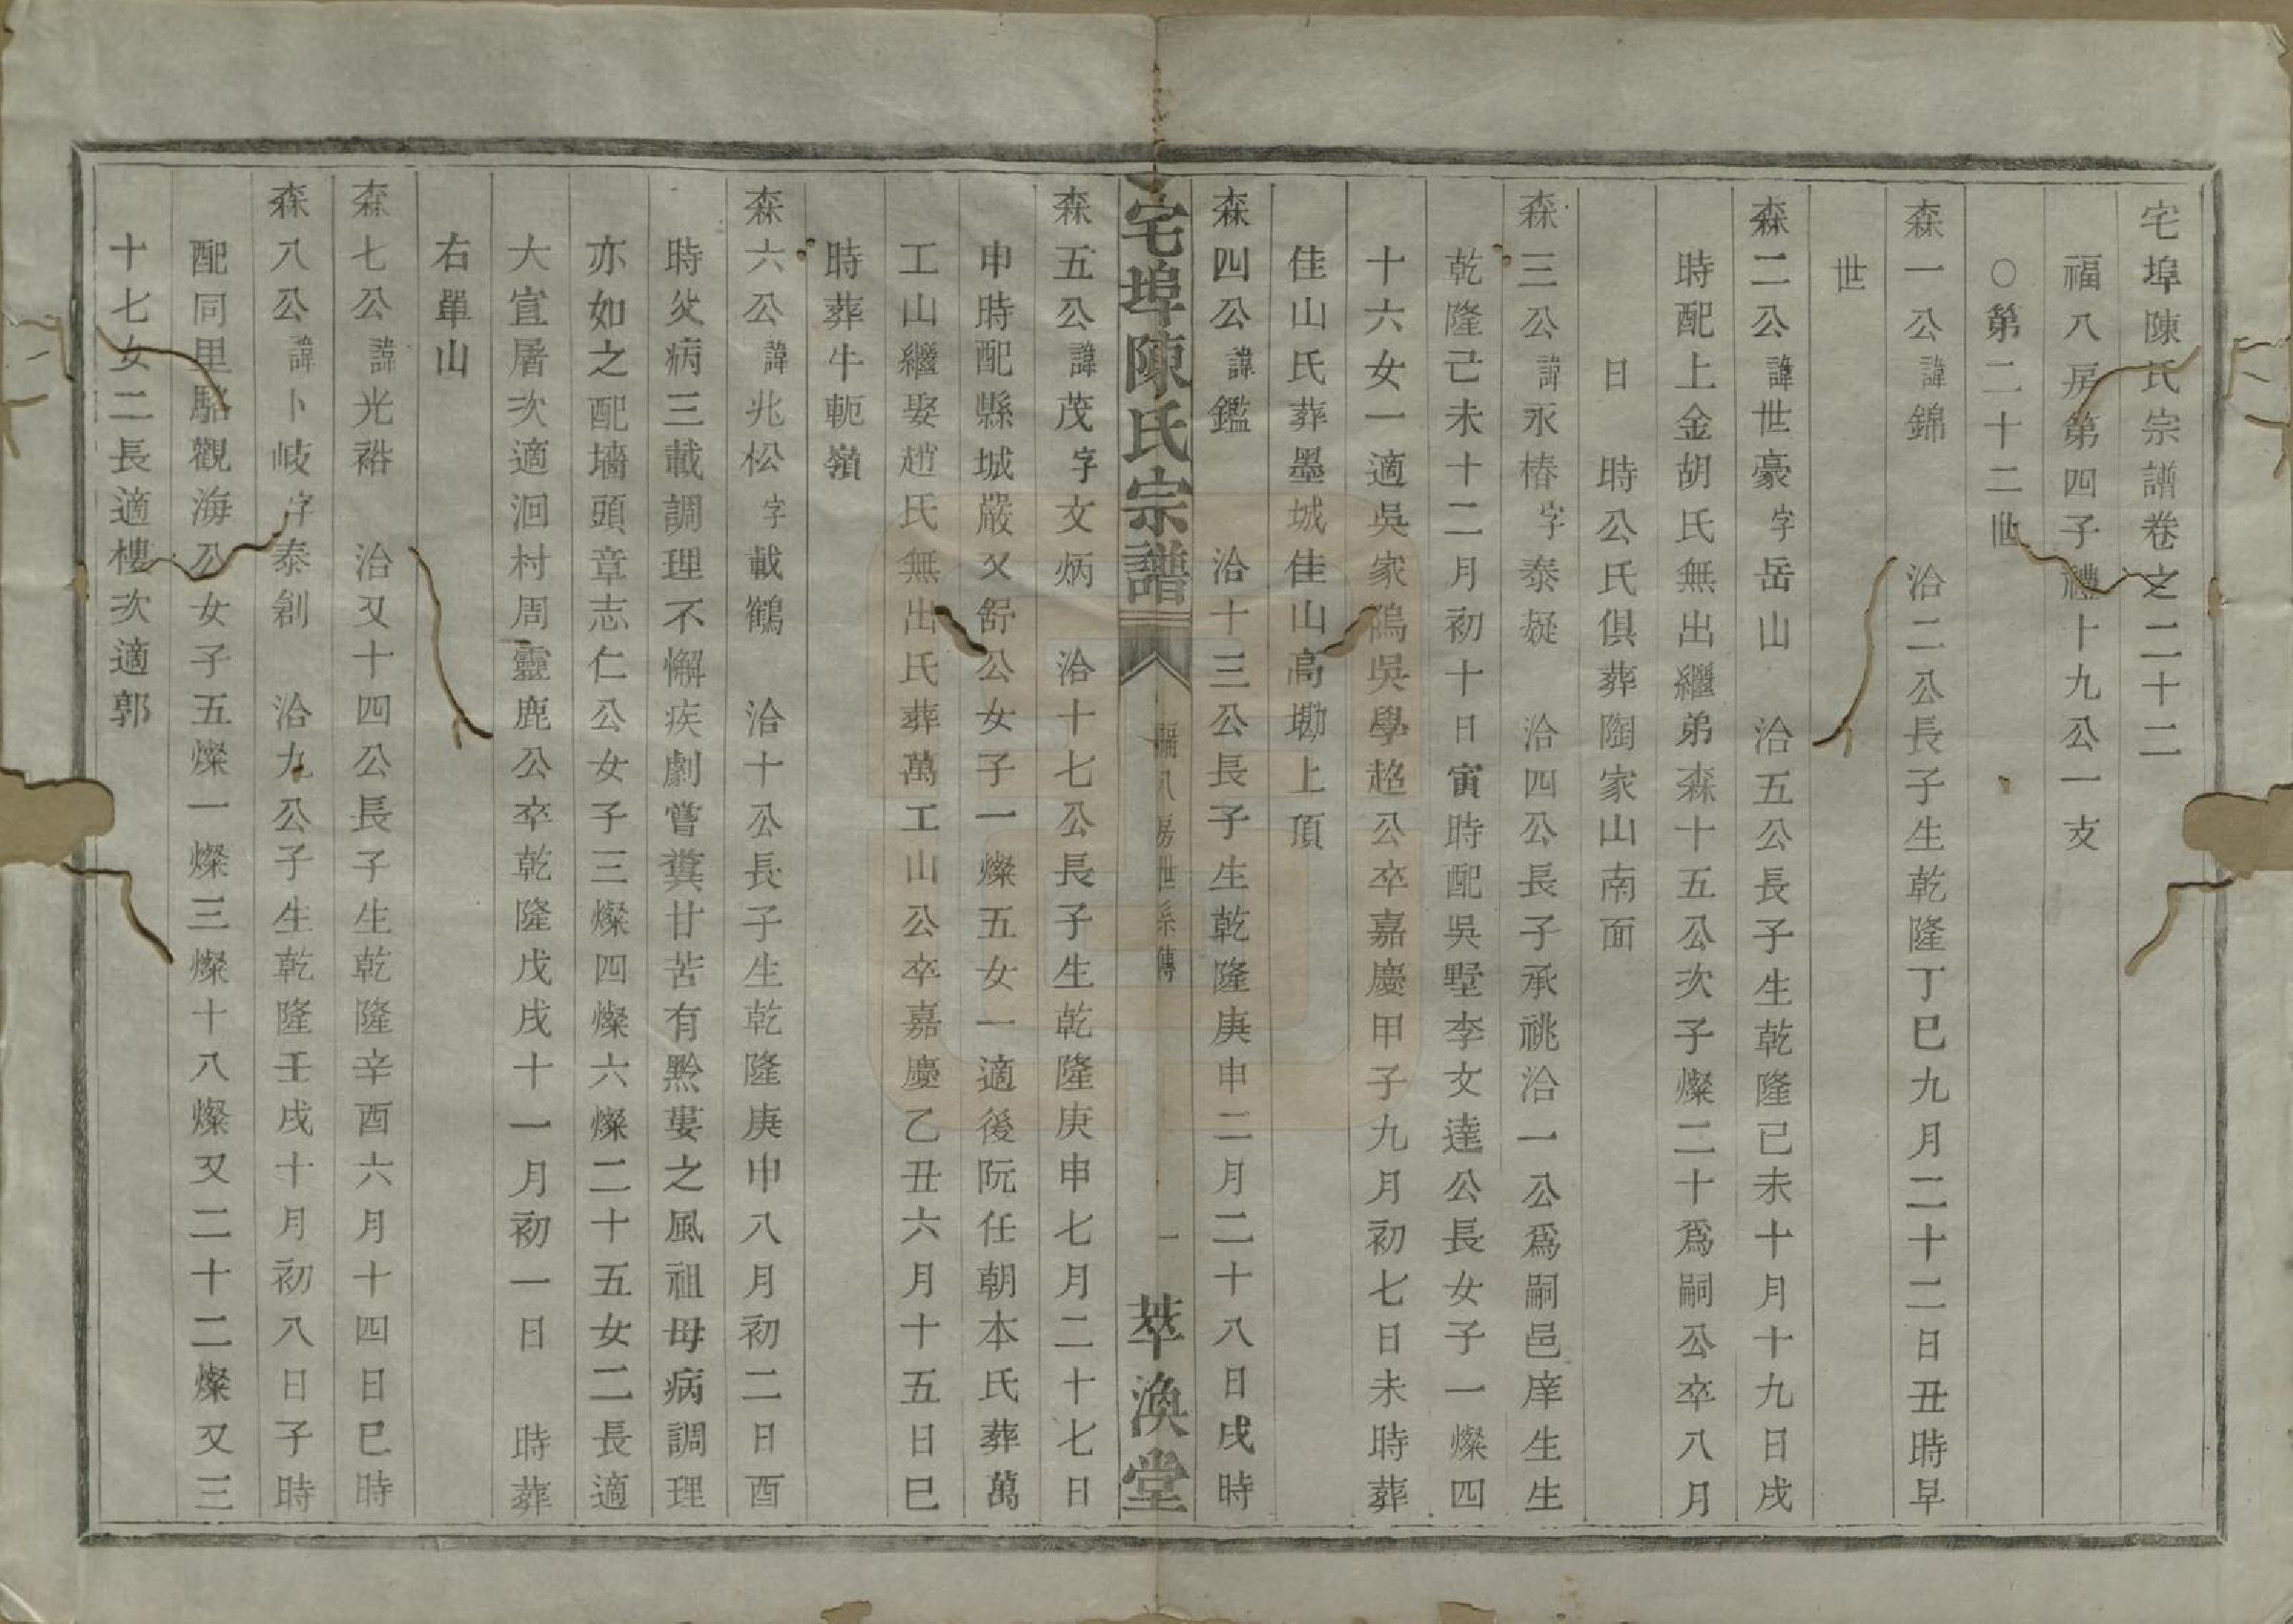 宅埠陳氏宗譜卷之二十二
福八房第四子禮十九公一支
○第二十二世
森一公諱錦　洽二公長子生乾隆丁巳九月二十二日丑時早
世
森二公諱世豪字岳山　洽五公長子生乾隆己未十月十九日戌
時配上金胡氏無出繼弟森十五公次子燦二十爲嗣公卒八月
日　時公氏俱葬陶家山南面
森三公諱永椿字泰凝　洽四公長子承祧洽一公爲嗣邑庠生生
乾隆己未十二月初十日寅時配吳墅李文達公長女子一燦四
十六女一適吳家隖吳學超公卒嘉慶甲子九月初七日未時葬
佳山氏葬墨城佳山高墈上頂
森四公諱鑑　洽十三公長子生乾隆庚申二月二十八日戌時
宅埠陳氏宗譜　福八房世系傳　一　萃渙堂
森五公諱茂字文炳　洽十七公長子生乾隆庚申七月二十七日
申時配縣城嚴又舒公女子一燦五女一適後阮任朝本氏葬萬
工山繼娶趙氏無出氏葬萬工山公卒嘉慶乙丑六月十五日巳
時葬牛軛嶺
森六公諱兆松字載鶴　洽十公長子生乾隆庚申八月初二日酉
時父病三載調理不懈疾劇嘗糞甘苦有黔婁之風祖母病調理
亦如之配墻頭章志仁公女子三燦四燦六燦二十五女二長適
大宣屠次適洄村周靈鹿公卒乾隆戊戌十一月初一日　時葬
右單山
森七公諱光裕　洽又十四公長子生乾隆辛酉六月十四日巳時
森八公諱卜岐字泰創　洽九公子生乾隆壬戌十月初八日子時
配同里駱觀海公女子五燦一燦三燦十八燦又二十二燦又三
十七女二長適樓次適郭